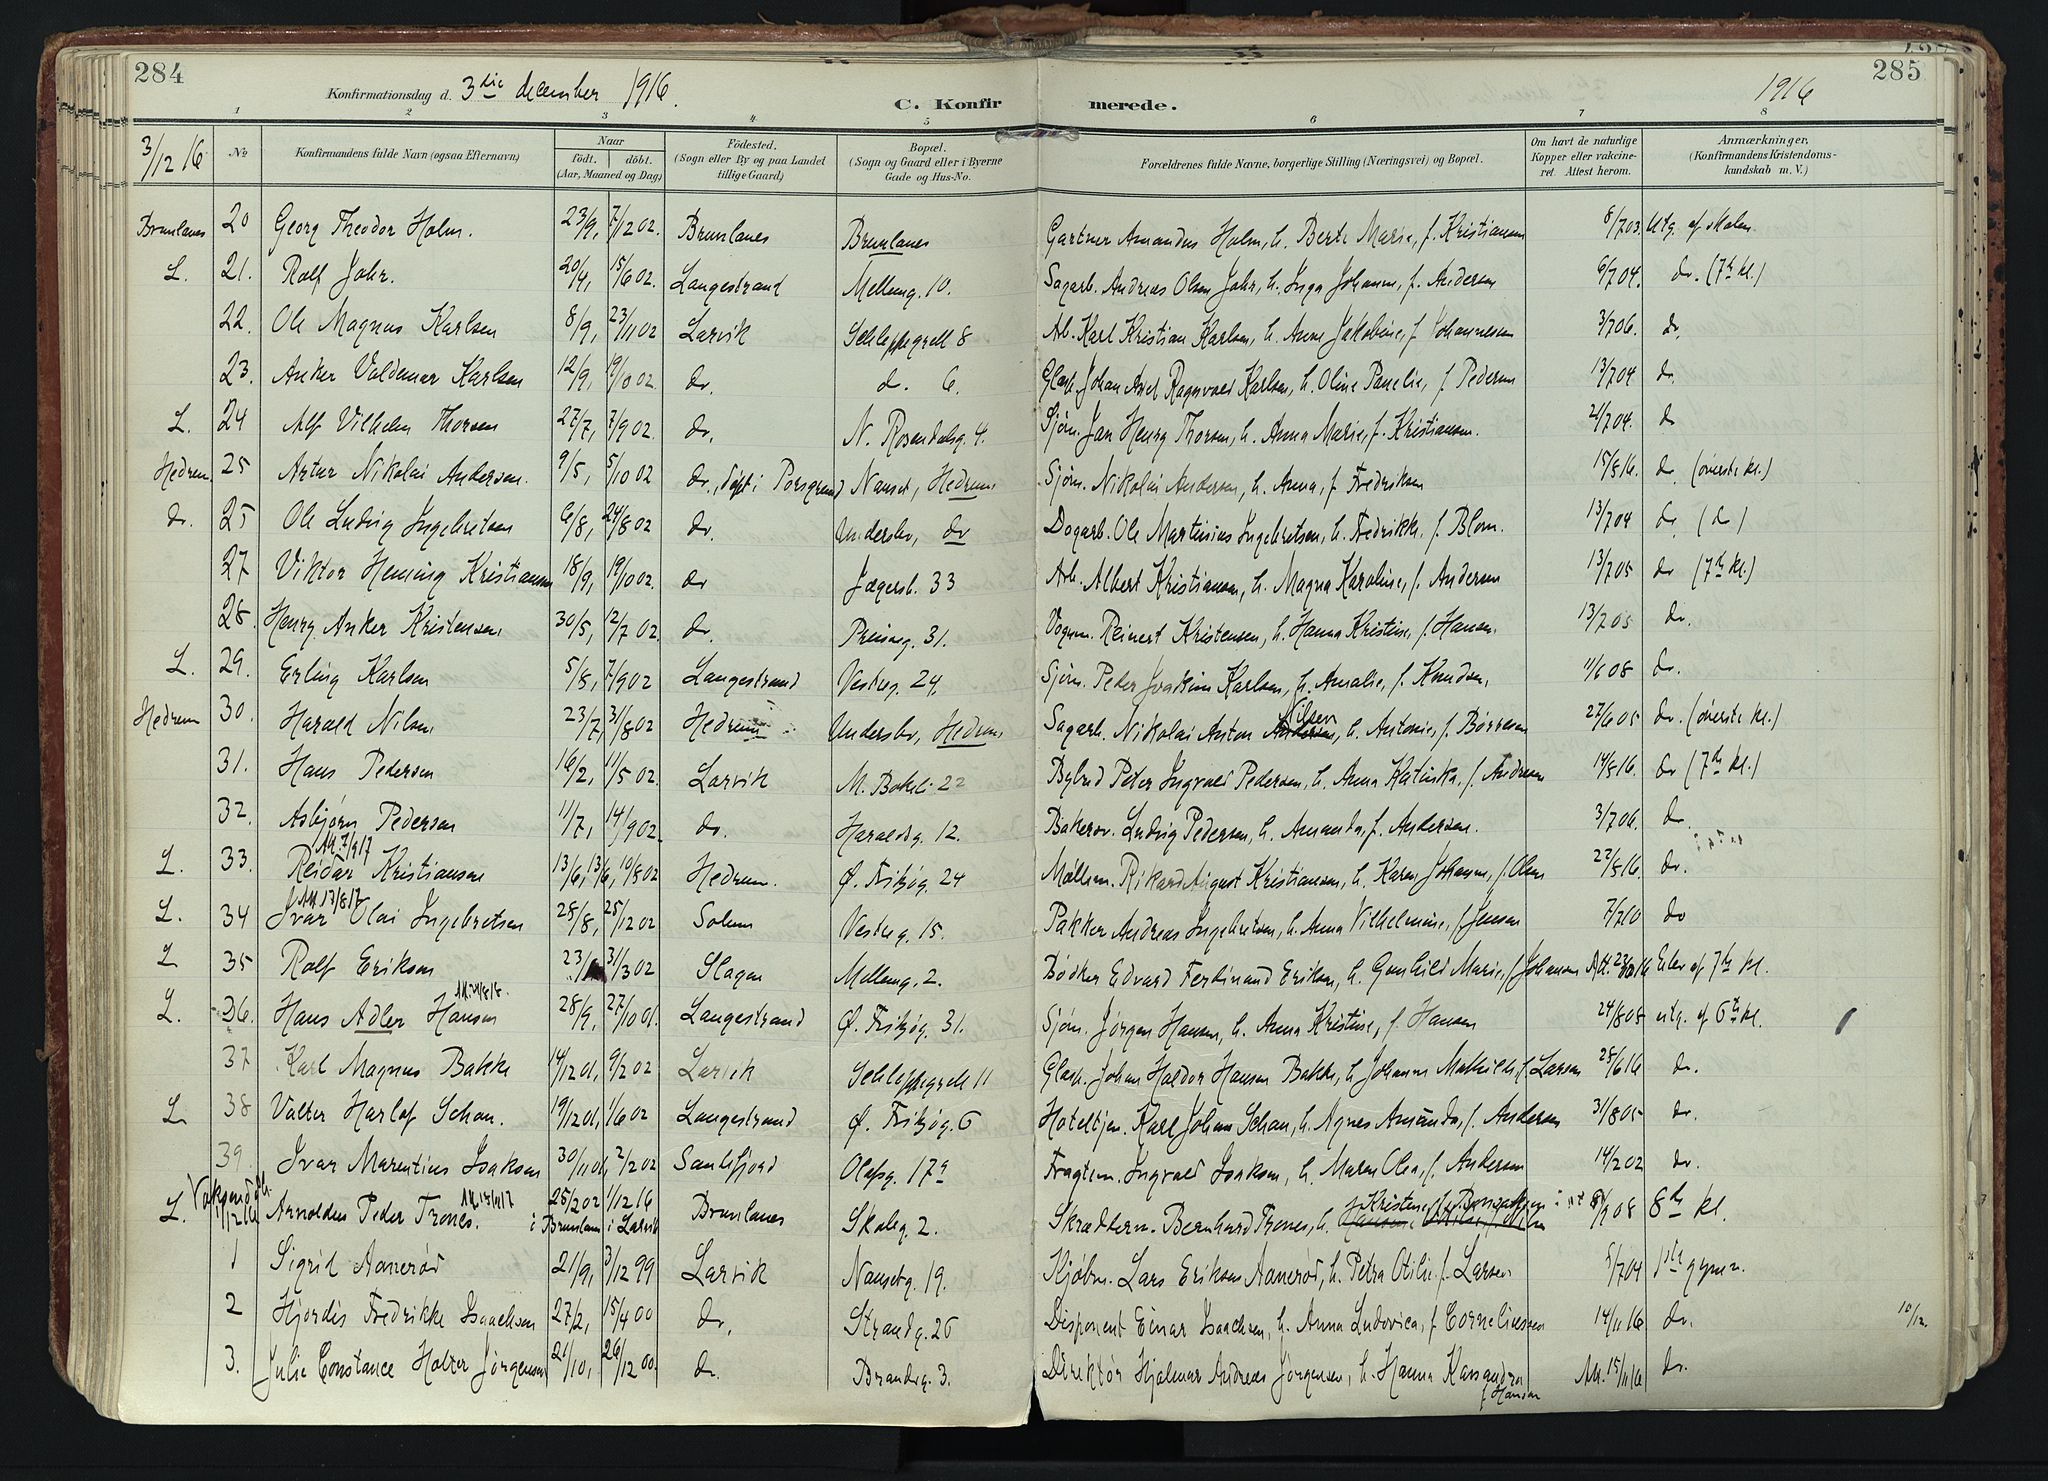 284
Konfirmationsdag d. 3die december 1916.
C. Konfirmerede.
1916
285
1 2 3 4 5 6 7 8
3/12 16
No
Konfirmandens fulde Navn (ogsaa Efternavn)
Naar
födt. döbt.
(Aar, Maaned og Dag)
Födested.
(Sogn eller By og paa Landet tillige Gaard)
Bopæl.
(Sogn og Gaard eller i Byerne Gade og Hus-No.
Forældrenes fulde Navne, borgerlige Stilling (Næringsvei) og Bopæl.
Om havt de naturlige Kopper eller vakcineret. Attest herom.
Anmærkninger.
(Konfirmandens Kristendomskundskab m. V.)
Brunlanes 20 Georg Theodor Holm. 23/9, 7/12 02. Brunlanes Brunlanes Gartner Amandus Holm, h. Berte Marie, f. Kristiansen 8/7 03. Utg. af skolen
L. 21. Rolf Johr. 20/4, 15/6 02. Langestrand Mellemg. 10. Sagarb. Andreas Olsen Johr, h. Inga Johanne, f. Andersen 6/7 04. do. (7de kl.)
22. Ole Magnus Karlsen 8/9, 23/11 02 Larvik Schleppegrell 8 Arb. Karl Kristian Karlsen, h. Anne Jakobine, f. Johannessen 3/7 06. do.
23. Anker Valdemar Karlsen 12/9, 19/10 02. do. d. 6. Glasb. Johan Axel Ragnvald Karlsen, h. Oline Panelie, f. Pedersen 13/7 04 do.
L. 24 Alf Vilhelm Thorsen 27/7, 7/9 02. do. N. Rosendalsg. 4. Sjøm. Jan Henry Thorsen, h. Anna Marie, f. Kristiansen. 21/7 04. do
Hedrum 25 Artur Nikolai Andersen. 9/5, 5/10 02 do., døpt i Porsgrund Nanset, Hedrum Sjøm. Nikolai Andersen, h. Anna, f. Fredriksen 15/8 16. do. (øverste kl.)
do. 25 Ole Ludvig Ingebretsen 6/8, 24/8 02 do. Undersbo, do Dagarb. Ole Martinius Ingebretsen, h. Fredrikke, f. Blom. 13/7 04 do. (do)
27 Viktor Heming Kristiansen 18/9, 19/10 02. do Jægersb. 33 Arb. Albert Kristiansen, h. Magna Karoline, f. Andersen 13/7 05 do (7de kl.)
28. Henry Anker Kristensen. 30/5, 12/7 02. do. Prinseg. 31. Vognm. Reinert Kristensen, h. Hanna Kristine, f. Hansen. 13/7 05 do.
L. 29. Erling Karlsen 5/8, 7/9 02 Langestrand Vestreg. 24. Sjøm. Peder Joakim Karlsen, h. Amalie, f. Knudsen, 11/6 08 do.
Hedrum 30. Harald Nilsen, 23/7, 31/8 02 Hedrum Undersbo, Hedrum Sagarb. Nikolai Anton Andersen Nilsen, h. Antonie, f. Børresen 27/6 05 do. (øverste kl.)
31. Hans Pedersen 16/2, 11/5 02. Larvik M. Bakeli 22 Bybud Peter Ingvald Pedersen, h. Anna Katinka, f. Andresen 14/8 16. do (7de kl.)
32. Asbjørn Pedersen 11/7, 14/9 02. do. Haraldsg. 12. Bakersv. Ludvig Pedersen, h. Amanda, f. Andersen. 3/7 06. do.
L. 33. Att. 7/9 17 Reidar Kristiansen 13/6, 13/6, 10/8 02 Hedrum. Ø. Fritzøg. 24 Møllem. Rikard August Kristiansen, h. Karen Johanne, f. Olsen 22/8 16. do.
L. 34 Att. 13/8 17 Ivar Olai Ingebretsen 28/8, 25/12 02 Solum Vestreg. 15. Pakker Andreas Ingebretsen, h. Anna Vilhelmine, f. Jensen 7/7 10 do
L 35 Rolf Eriksen 23/ 31/3 02 Slagen Mellemg. 2. Bødker Edvard Ferdinand Eriksen, h. Gunhild Marie, f. Johansen Att. 23/ 16 Elev af 7de kl.
L. 36. Hans Adler Hansen 28/9, 27/10 01. Langestrand Ø. Fritzøg. 31. Sjøm. Jørgen Hansen, h. Anna Kristine, f. Hansen 24/8 08 utg. af 6te kl.
37 Karl Magnus Bakke 14/12 01, 9/2 02 Larvik Schleppegrell 11 Glasb. Johan Haldor Hansen Bakke, h. Johanne Mathilde, f. Larsen 28/6 16 do.
L 38 Valter Harlof Schau. 19/12 01, 1/6 02 Langestrand Ø. Fritzøg. 6 Hoteltjen. Karl Johan Schau, h. Agnes Amanda, f. Andersen 31/8 05 do.
39. Ivar Marentius Isaksen 30/11 01, 2/2 02 Sandefjord Olafsg. 17a Fragtem. Ingvald Isaksen, h. Maren Olea, f. Andersen 14/2 02 do.
L. 1/12 16 Arnolden Peder Trones. 25/2 02 i Brunlanes 1/12 16 i Larvik Brunlanes Skoleg. 2. Skræddern. Bernhard Trones, h. Kristense, f. /9 08 8de kl.
1 Sigrid Aanerød 21/9, 3/12 99 Larvik Nansetg. 19. Kjøbm. Lars Eriksen Aanerød, h. Petra Otilie, f. Larsen 5/7 04 1ste gymn.
2 Hjørdis Fredrikke Isachsen 27/2, 15/4 00 do. Strandg. 26 Disponent Einar Isachsen, h. Anna Ludovica, f. Corneliussen 14/11 16 do. 10/12.
3. Julie Constance Holter Jørgensen 21/10, 26/12 00. do. Brandvg. 3. Direktør Hjalmar Andreas Jørgensen, h. Hanna Kassandra f. Hansen Att. 15/11 16 do.